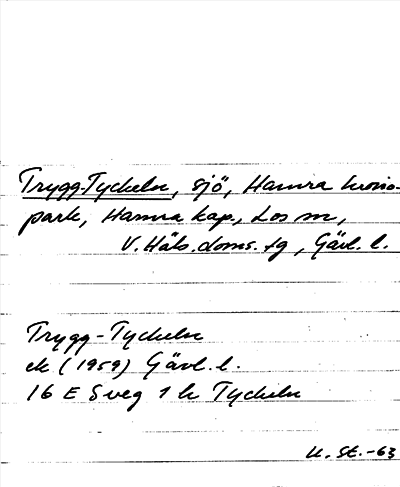 Trygg-Tyckeln, sjö, Hamra krono-
park, Hamra kap., Los sn,
V. Häls. doms. tg, Gävl. l.
Trygg-Tyckeln
ek (1959) Gävl. l.
16 E Sveg 1 h Tyckeln
U. St. -63